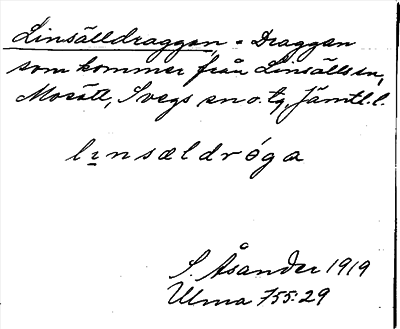 Linsälldraggan, = Draggen
som kommer från Linsälls sn,
Mosätt, Svegs sn o. tg, Jämtl. l.
linsældróga
S. Åsander 1919
Ulma 755:29